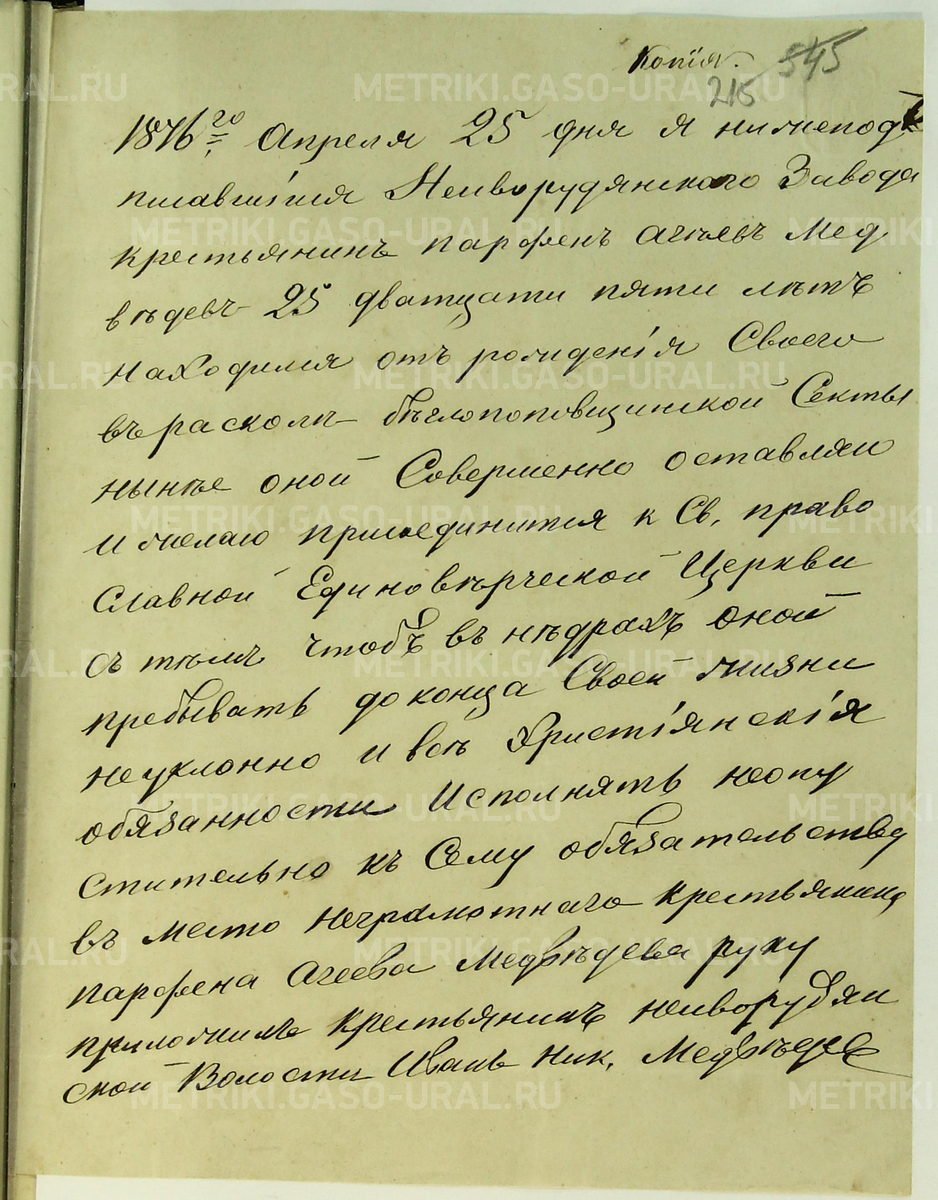 Копія.
545
215
1876го Апреля 25 дня я нижеподъ
писавшійся Нейворудянского Завода
крестьянинъ парфенъ агѣевъ Мед
вѣдевъ 25 дватцати пяти лѣтъ
находился отъ рождѣнія Своего
въ расколѣ бѣглопоповщинской Секты
нынѣе оной Совершенно оставляю
и желаю присоединится к Св. право
славной Единовѣрческой Церкви
съ тѣмъ чтобъ въ нѣдрахъ оной
пребывать до конца Своей жизни
неуклонно и всѣ Христіянскія
обязанности Исполнять неопу
стительно къ Сему обязательству
въ место неграмотнаго крестьянина
парфена агеева Медвѣдева руку
приложилъ крестьянинъ нейворудян
ской Волости Иванъ Ник. Медвѣдев
METRIKI.GASO-URAL.RU